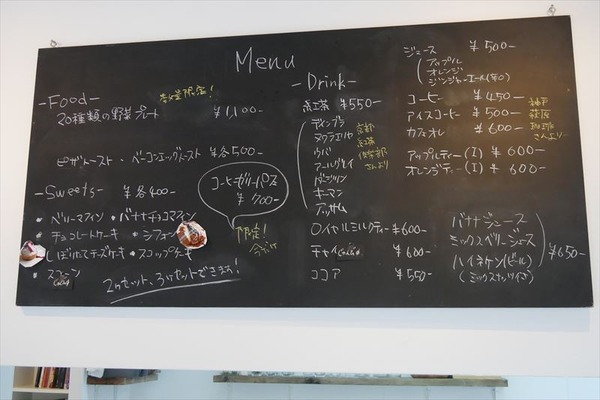 Menu
-Food-
数量限定!
20種類の野菜プレート ¥1,100-
ピザトースト・ベーコンエッグトースト ¥各500-
-Sweets- ¥各400-
・ベリーマフィン ・バナナチョコマフィン
・チョコレートケーキ ・シフォン
・しぼりたてチーズケーキ ・スコップケーキ
・スコーン
2ケセット、3ケセットできます!
コーヒーゼリーパフェ
¥700-
限定!
今だけ
-Drink-
紅茶 ¥550-
ディンブラ
ヌワラエリヤ
ウバ
アールグレイ
ダージリン
キーマン
アッサム
京都
紅茶
さんより
ロイヤルミルクティー ¥600-
チャイ ¥600-
ココア ¥550-
ジュース ¥500-
アップル
オレンジ
ジンジャーエール(辛口)
コーヒー ¥450-
アイスコーヒー ¥500-
カフェオレ ¥600-
神戸
萩原
珈琲
さんより
アップルティー(I) ¥600-
オレンジティー(I) ¥600-
バナナジュース
ミックスベリージュース
ハイネケン(ビール)
(ミックスナッツ付き)
¥650-